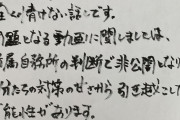 全く情けない話です。
問題となる動画に関しましては、
所属自務所の判断で非公開となり
自分たちの対策の甘さから引き起こした
可能性があります。